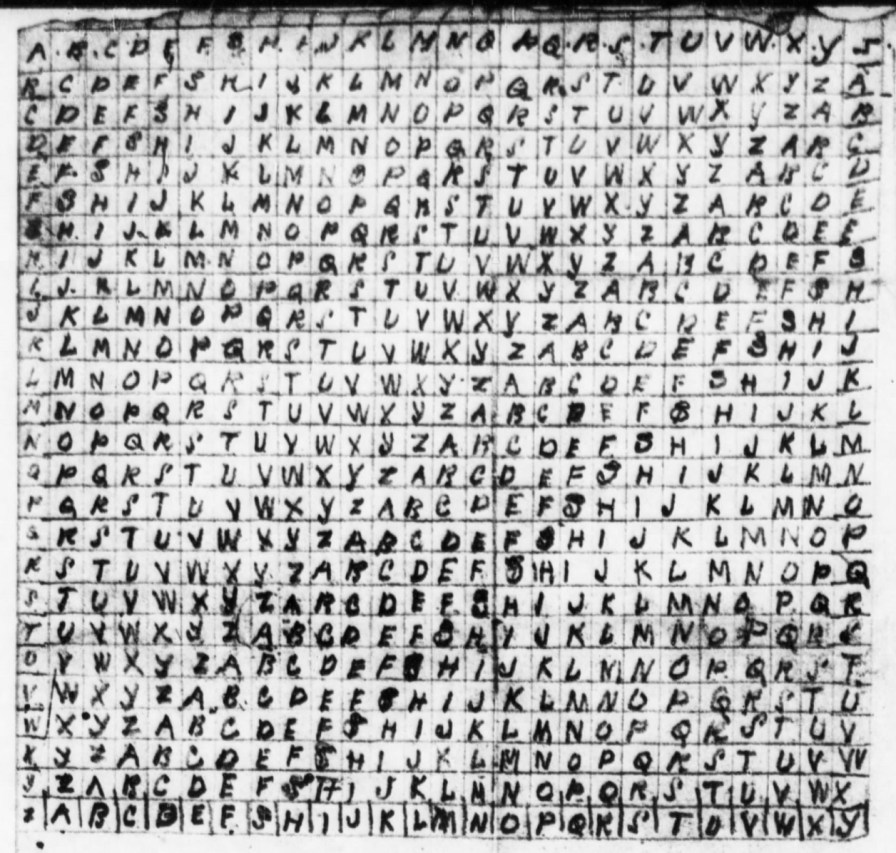 A B C D E F G H I J K L M N O P Q R S T U V W X Y Z
B C D E F G H I J K L M N O P Q R S T U V W X Y Z A
C D E F G H I J K L M N O P Q R S T U V W X Y Z A B
D E F G H I J K L M N O P Q R S T U V W X Y Z A B C
E F G H I J K L M N O P Q R S T U V W X Y Z A B C D
F G H I J K L M N O P Q R S T U V W X Y Z A B C D E
G H I J K L M N O P Q R S T U V W X Y Z A B C D E F
H I J K L M N O P Q R S T U V W X Y Z A B C D E F G
I J K L M N O P Q R S T U V W X Y Z A B C D E F G H
J K L M N O P Q R S T U V W X Y Z A B C D E F G H I
K L M N O P Q R S T U V W X Y Z A B C D E F G H I J
L M N O P Q R S T U V W X Y Z A B C D E F G H I J K
M N O P Q R S T U V W X Y Z A B C D E F G H I J K L
N O P Q R S T U V W X Y Z A B C D E F G H I J K L M
O P Q R S T U V W X Y Z A B C D E F G H I J K L M N
P Q R S T U V W X Y Z A B C D E F G H I J K L M N O
Q R S T U V W X Y Z A B C D E F G H I J K L M N O P
R S T U V W X Y Z A B C D E F G H I J K L M N O P Q
S T U V W X Y Z A B C D E F G H I J K L M N O P Q R
T U V W X Y Z A B C D E F G H I J K L M N O P Q R S
U V W X Y Z A B C D E F G H I J K L M N O P Q R S T
V W X Y Z A B C D E F G H I J K L M N O P Q R S T U
W X Y Z A B C D E F G H I J K L M N O P Q R S T U V
X Y Z A B C D E F G H I J K L M N O P Q R S T U V W
Y Z A B C D E F G H I J K L M N O P Q R S T U V W X
Z A B C D E F G H I J K L M N O P Q R S T U V W X Y